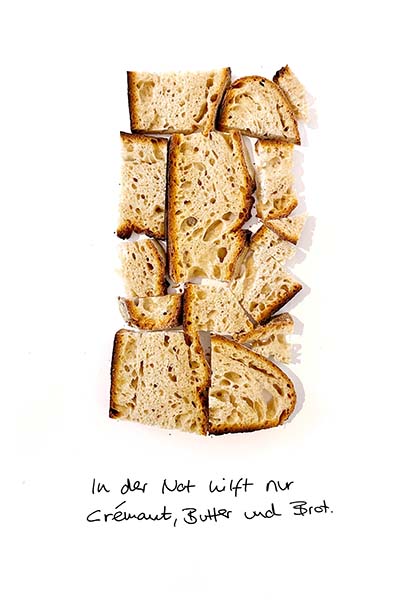 In der Not hilft nur
Crémant, Butter und Brot.